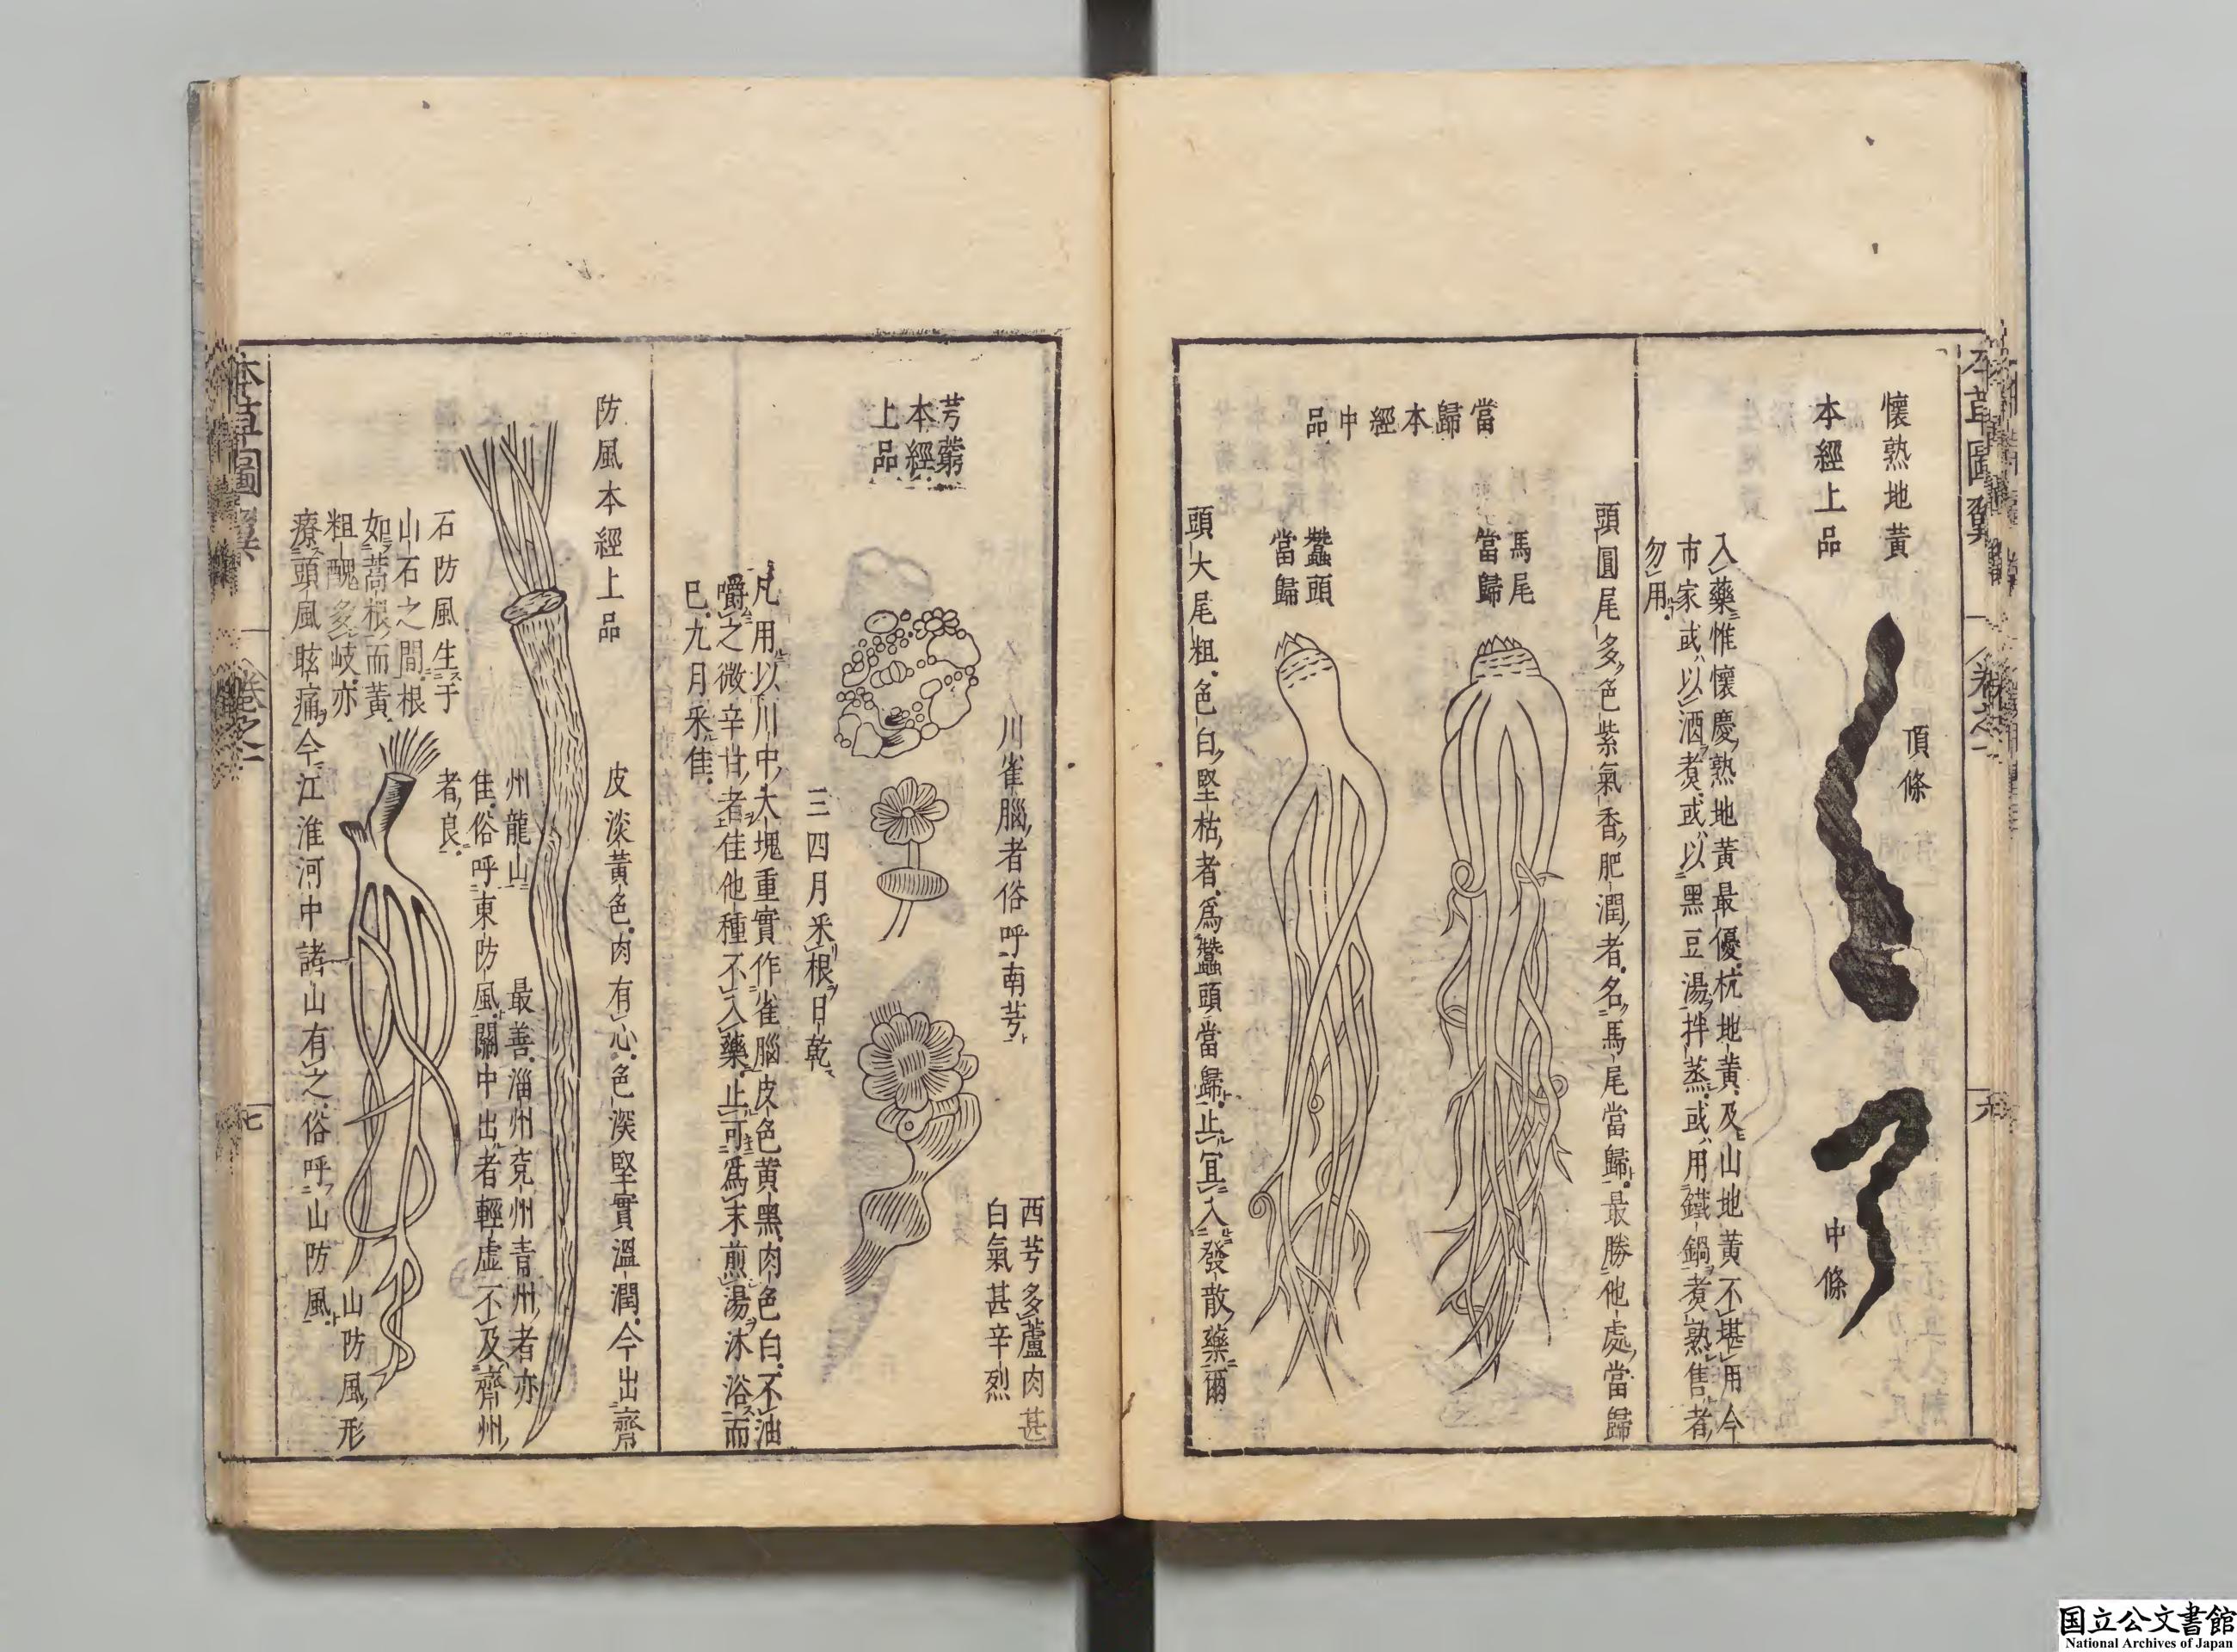 懷熟地黃
本經上品
頂條
中條
入藥惟懷慶熟地黃最優杭地黃及山地黃不堪用今
市家或以酒煑或以黑豆湯拌蒸或用鐵鍋煑熟售者
勿用
當歸本經中品
頭圓尾多色紫氣香肥潤者名馬尾當歸最勝他處當歸
馬尾
當歸
蠶頭
當歸
頭大尾粗色白堅枯者爲蠶頭當歸止宜入發散藥爾
芎藭
本經
上品
西芎多蘆肉甚
白氣甚辛烈
川雀腦者俗呼南芎
三四月采根日乾
凡用以川中大塊重實作雀腦皮色黃黑肉色白不油
嚼之微辛甘者佳他種不入藥止可爲末煎湯沐浴而
巳九月采佳
防風本經上品
皮淡黃色肉有心色深堅實溫潤今出齊
州龍山
最善淄州兗州青州者亦
佳俗呼東防風關中出者輕虛不及齊州
者良
石防風生于
山石之間根
如蒿根而黃
粗醜多岐亦
山防風形
療頭風眩痛今江淮河中諸山有之俗呼山防風
卷之一
七
国立公文書館
National Archives of Japan